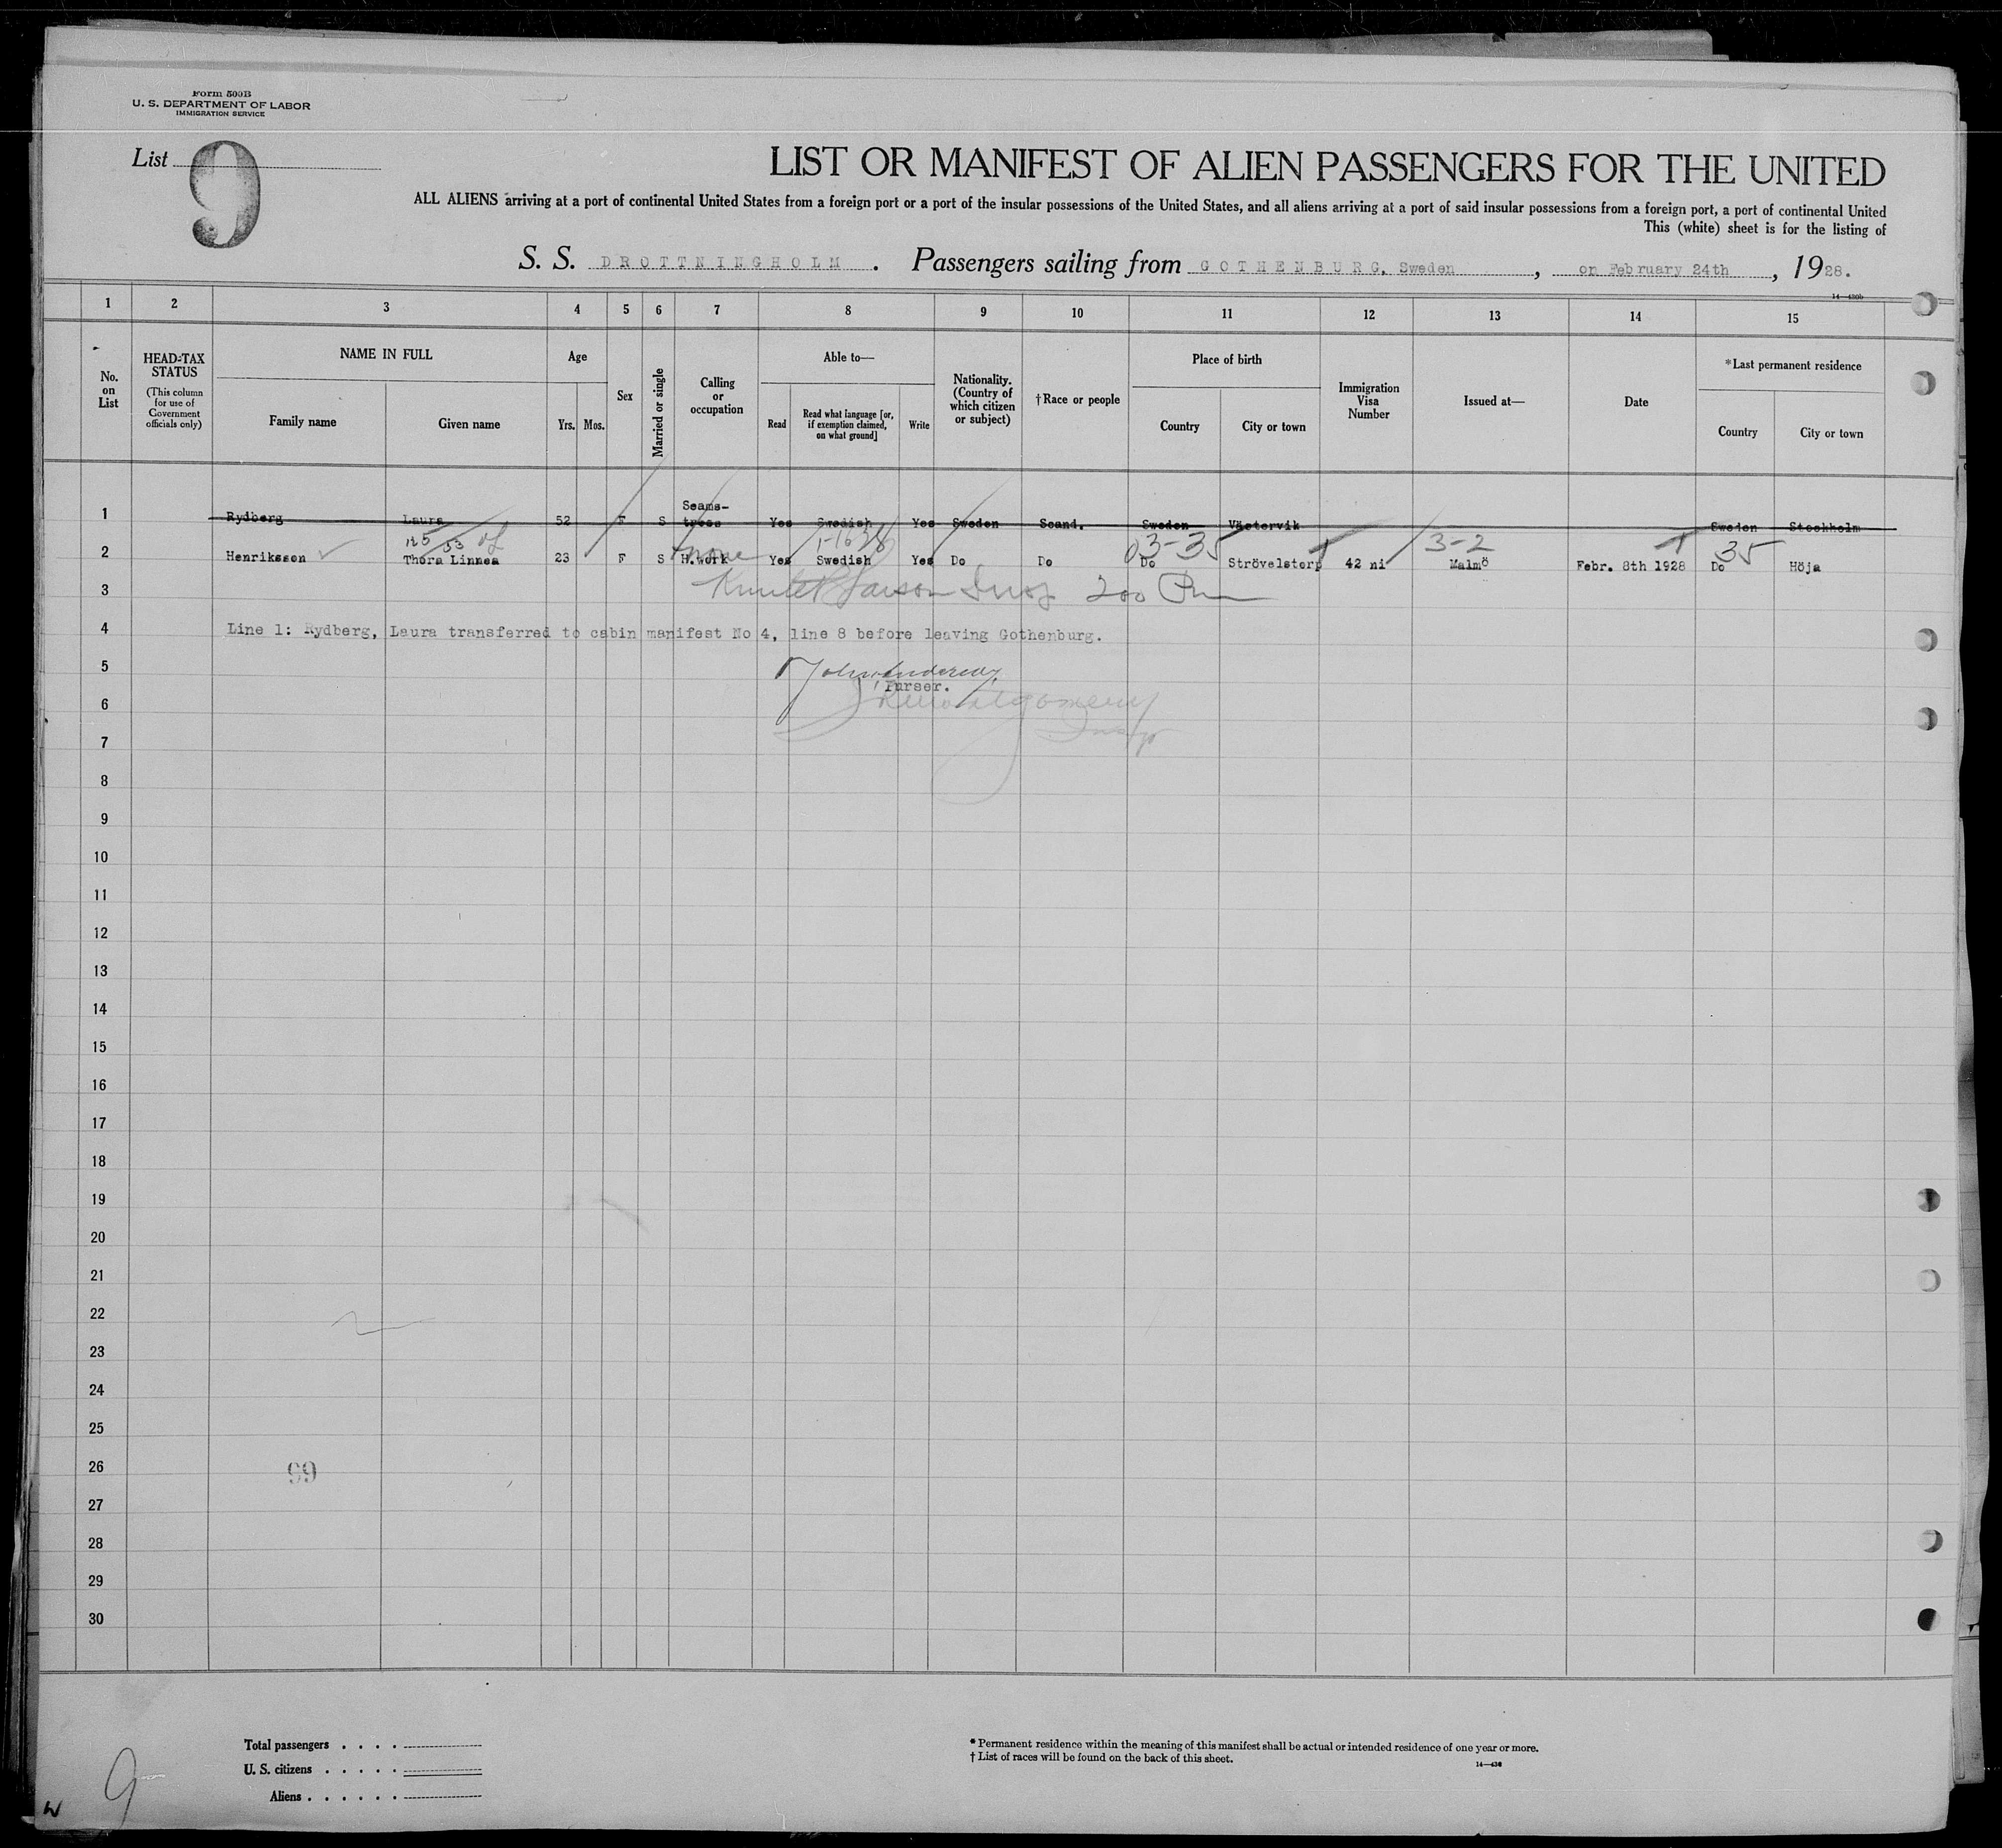 Form 500B
U. S. DEPARTMENT OF LABOR
IMMIGRATION SERVICE
List 9
LIST OR MANIFEST OF ALIEN PASSENGERS FOR THE UNITED
ALL ALIENS arriving at a port of continental United States from a foreign port or a port of the insular possessions of the United States, and all aliens arriving at a port of said insular possessions from a foreign port, a port of continental United
This (white) sheet is for the listing of
S. S. DROTTNINGHOLM. Passengers sailing from GOTHENBURG, Sweden, on February 24th, 1928.
14—430b
1 2 3 4 5 6 7 8 9 10 11 12 13 14 15
No. on List
HEAD-TAX STATUS (This column for use of Government officials only)
NAME IN FULL
Family name Given name
Age
Yrs. Mos.
Sex
Married or single
Calling or occupation
Able to—
Read
Read what language [or, if exemption claimed, on what ground]
Write
Nationality. (Country of which citizen or subject)
†Race or people
Place of birth
Country City or town
Immigration Visa Number
Issued at—
Date
*Last permanent residence
Country City or town
1 Rydberg Laura 52 F S Seams-tress Yes Swedish Yes Sweden Scand. Sweden Västervik Sweden Stockholm
125 53 none 03-35 3-2 35
2 Henriksson Thora Linnea 23 F S H.work Yes Swedish Yes Do Do Do Strövelstorp 42 ni Malmö Febr. 8th 1928 Do Höja
3 200
4 Line 1: Rydberg, Laura transferred to cabin manifest No 4, line 8 before leaving Gothenburg.
5
Purser.
6 Montgomery
7
8
9
10
11
12
13
14
15
16
17
18
19
20
21
22
23
24
25
26 99
27
28
29
30
Total passengers . . . .
U. S. citizens . . . . .
Aliens . . . . . .
* Permanent residence within the meaning of this manifest shall be actual or intended residence of one year or more.
† List of races will be found on the back of this sheet.
14—430
9